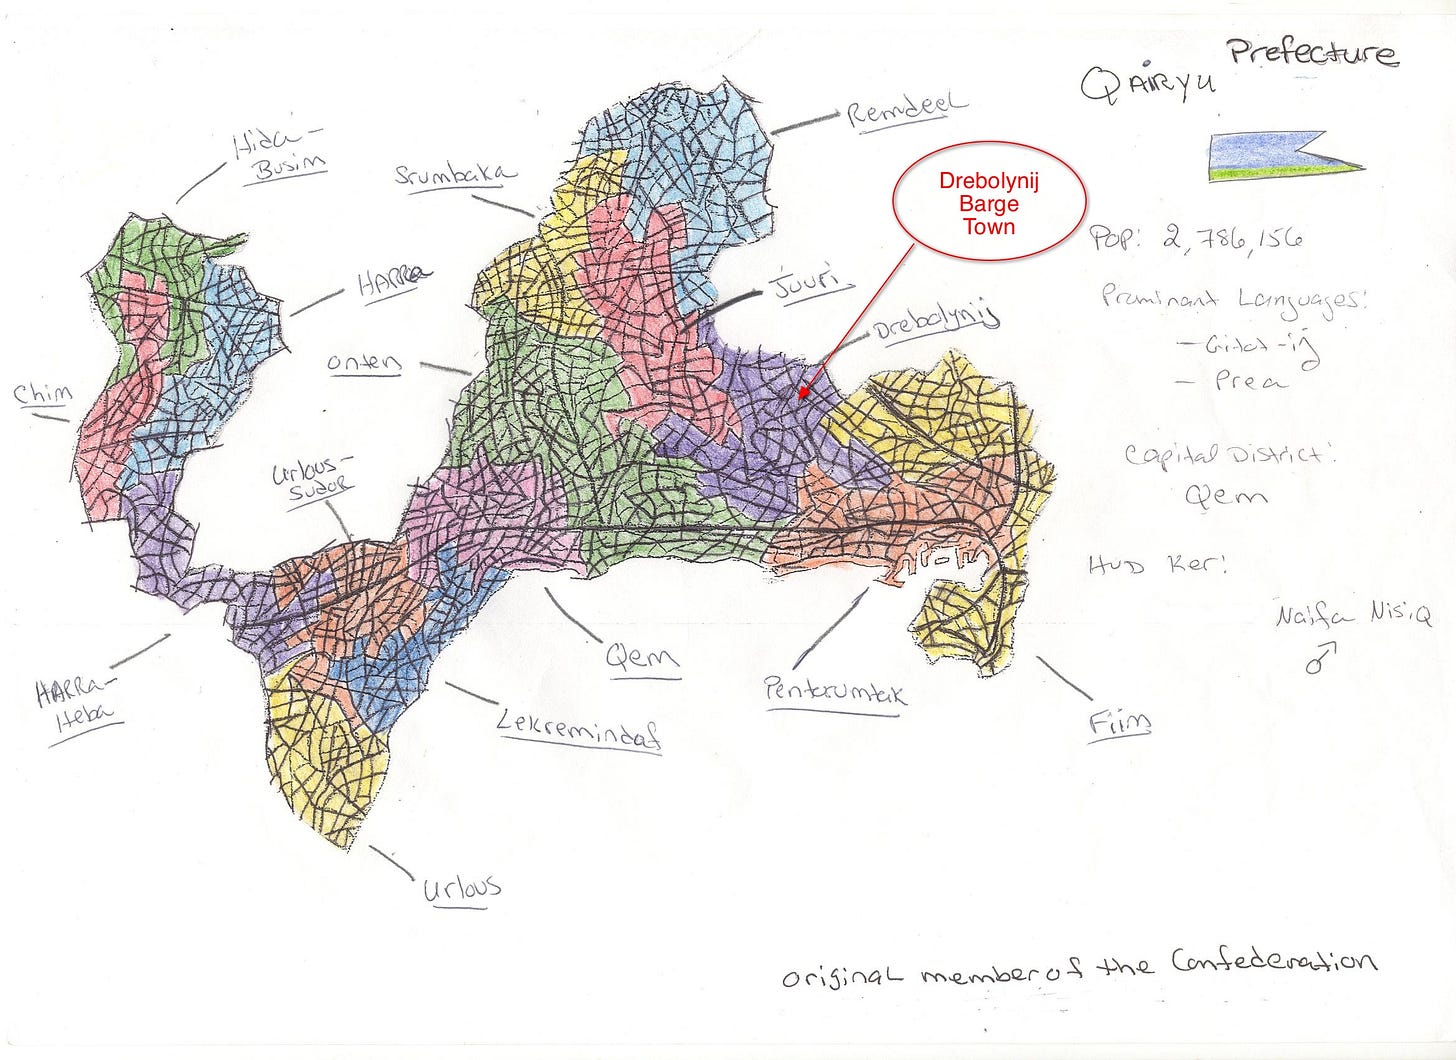 Prefecture
QAIRYU
Remdeel
Hida-
Busim
Srumbaka
Drebolynij
Barge
Town
Pop: 2,786,156
HARRa
Juuri
Prominant Languages:
Drebolynij
- Gitot-ij
- Prea
Onten
Chim
Capital District:
Qem
Urlous-
Sudor
Hud Ker:
Naifa Nisiq
♂
Qem
HARRa-
Heba
Pentarumtak
Lekremindaf
Fiim
Urlous
original member of the Confederation